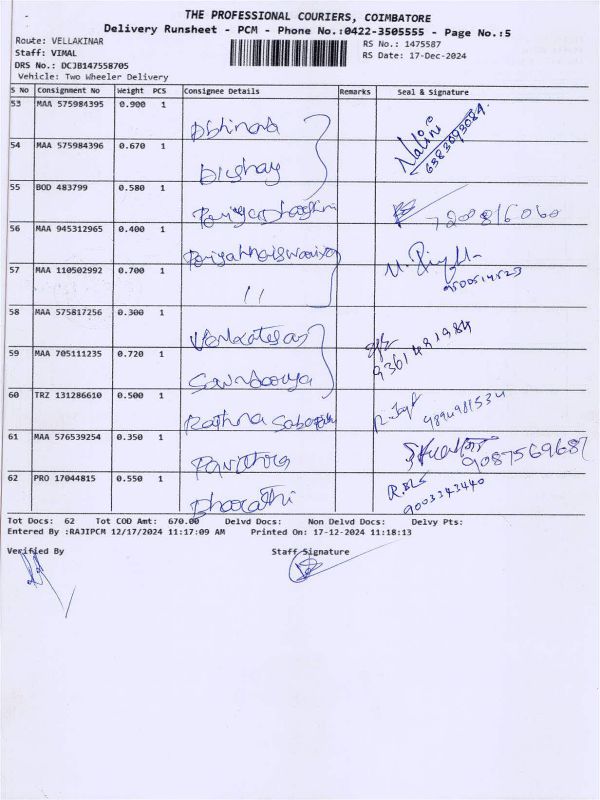 THE PROFESSIONAL COURIERS, COIMBATORE
Delivery Runsheet - PCM - Phone No.:0422-3505555 - Page No.:5
Route: VELLAKINAR RS No.: 1475587
Staff: VIMAL RS Date: 17-Dec-2024
DRS No.: DCJB147558705
Vehicle: Two Wheeler Delivery
S No Consignment No Weight PCS Consignee Details Remarks Seal & Signature
53 MAA 575984395 0.900 1 Abhinav Nalini 6383093084
54 MAA 575984396 0.670 1
55 BOD 483799 0.580 1 7200816060
56 MAA 945312965 0.400 1
57 MAA 110502992 0.700 1 11 9500514523
58 MAA 575817256 0.300 1 Venkatesan
59 MAA 705111235 0.720 1 Soundarya 9361481984
60 TRZ 131286610 0.500 1 Rathna 9894981534
61 MAA 576539254 0.350 1 Pavithra 9087569687
62 PRO 17044815 0.550 1 Bharathi 9003343440
Tot Docs: 62 Tot COD Amt: 670.00 Delvd Docs: Non Delvd Docs: Delvy Pts:
Entered By :RAJIPCM 12/17/2024 11:17:09 AM Printed On: 17-12-2024 11:18:13
Verified By Staff Signature